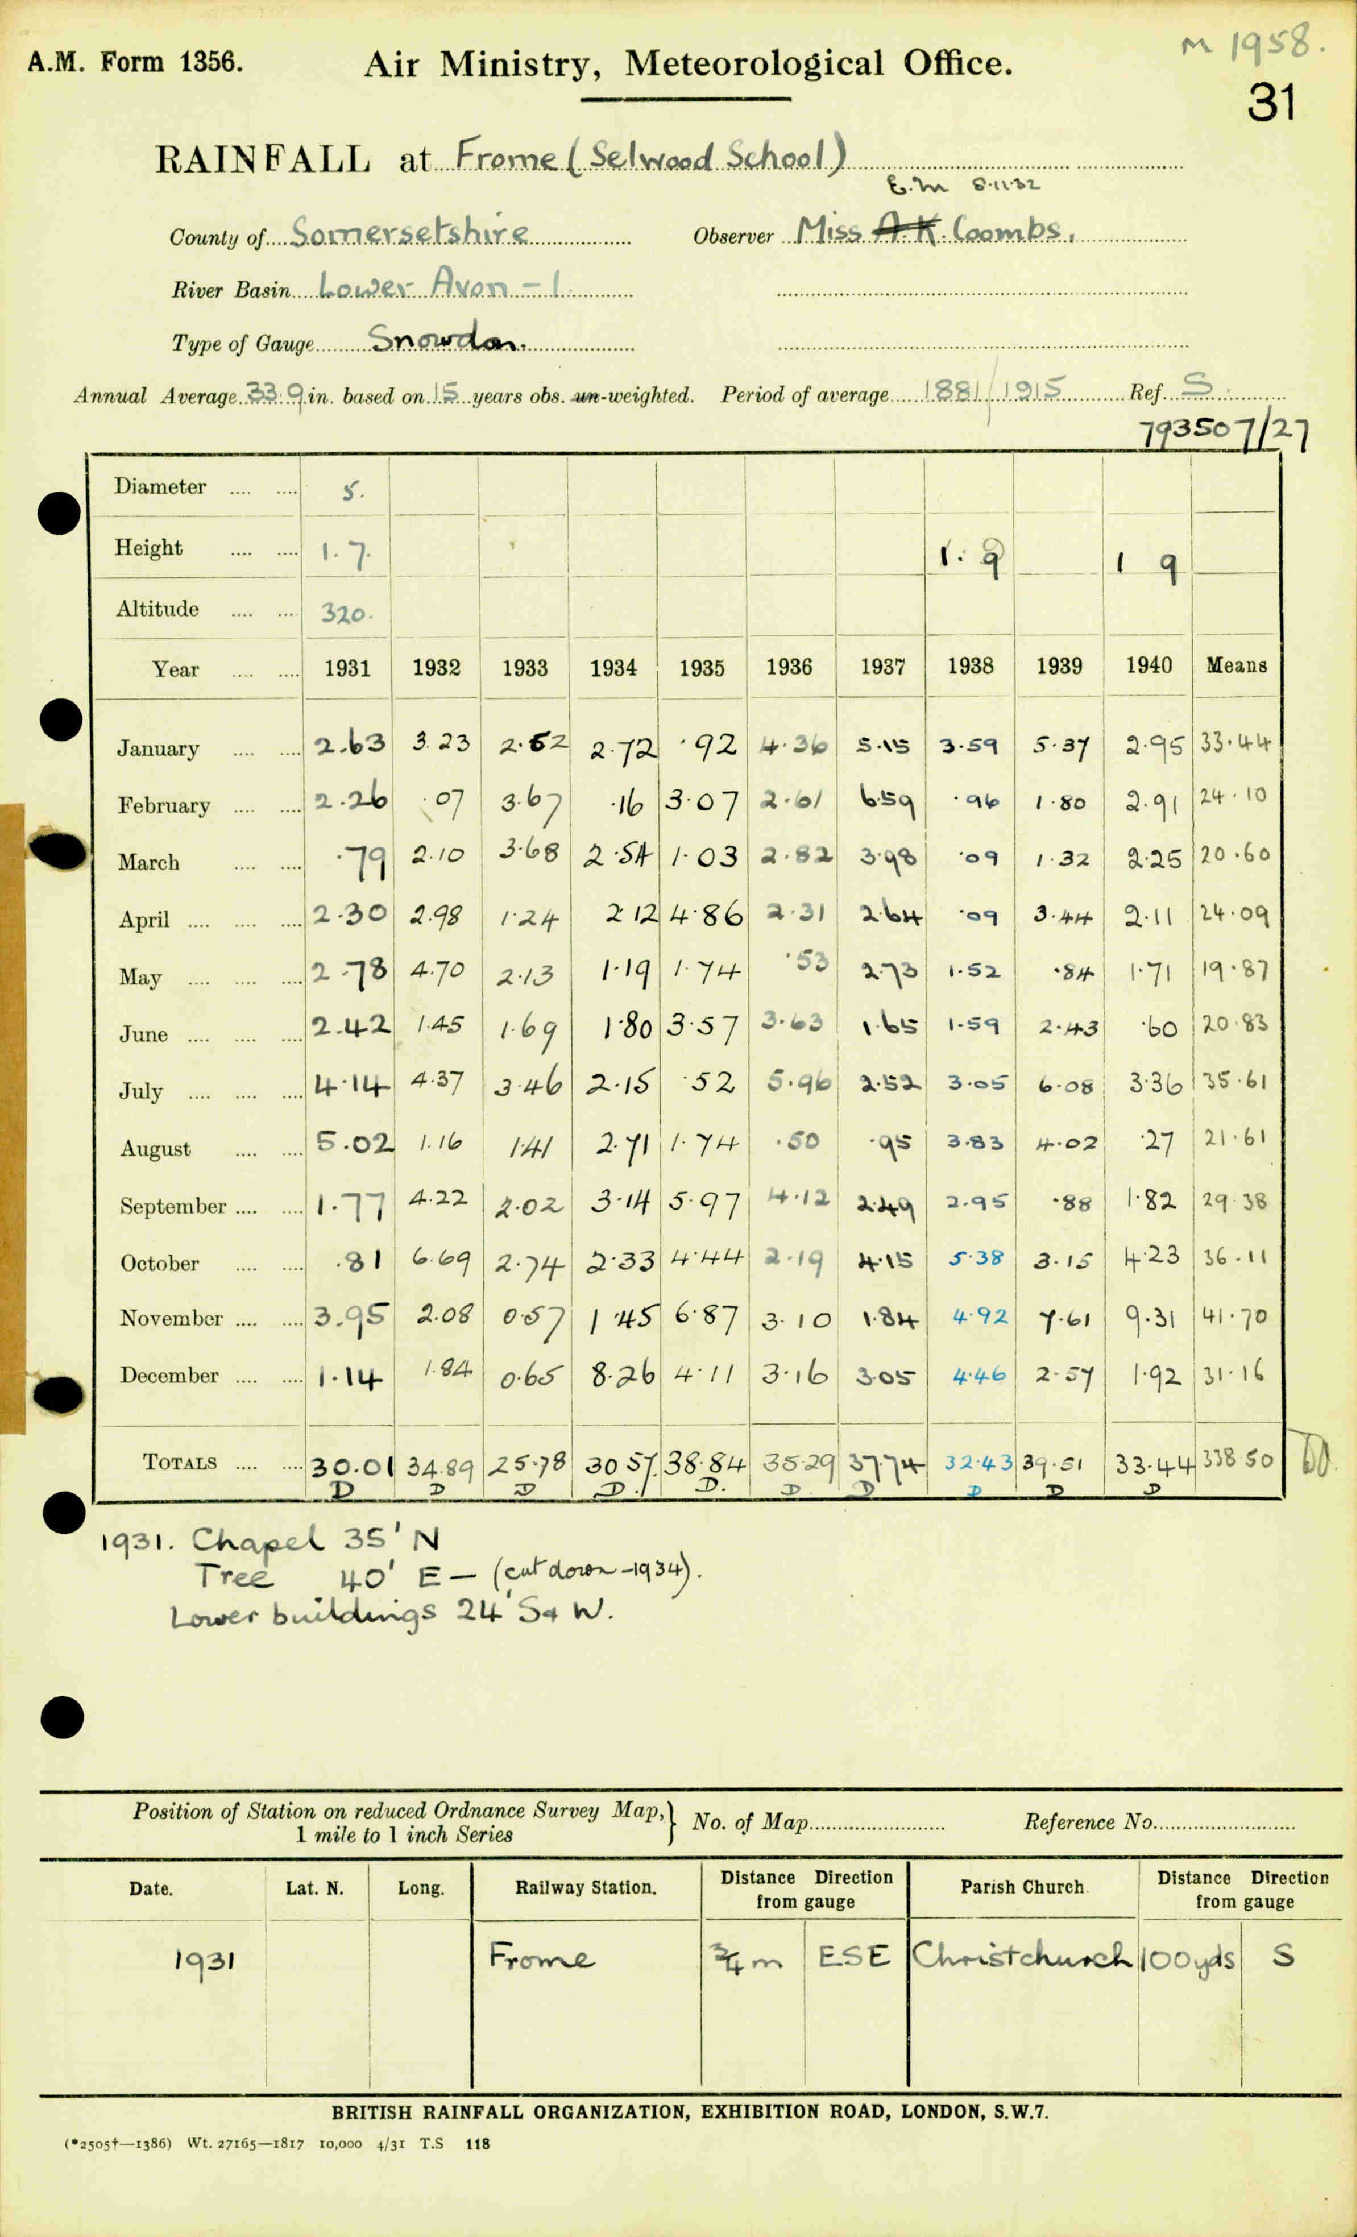 M 1958.
A.M. Form 1356. Air Ministry, Meteorological Office.
31
RAINFALL at Frome (Selwood School)
E.M 8.11.32
County of Somersetshire Observer Miss A.K. Coombs.
River Basin Lower Avon - 1
Type of Gauge Snowdon.
Annual Average 33.9 in. based on 15 years obs. un-weighted. Period of average 1881/1915 Ref. S
793507/27
Diameter .... .... 5.
Height .... .... 1. 7. 1. 9 1 9
Altitude .... .... 320.
Year .... .... 1931 1932 1933 1934 1935 1936 1937 1938 1939 1940 Means
January .... .... 2.63 3.23 2.52 2.72 .92 4.36 5.15 3.59 5.37 2.95 33.44
February .... .... 2.26 .07 3.67 .16 3.07 2.61 6.59 .96 1.80 2.91 24.10
March .... .... .79 2.10 3.68 2.54 1.03 2.82 3.98 .09 1.32 2.25 20.60
April .... .... .... 2.30 2.98 1.24 2.12 4.86 2.31 2.64 .09 3.44 2.11 24.09
May .... .... .... 2.78 4.70 2.13 1.19 1.74 .53 2.73 1.52 .84 1.71 19.87
June .... .... .... 2.42 1.45 1.69 1.80 3.57 3.63 1.65 1.59 2.43 .60 20.83
July .... .... .... 4.14 4.37 3.46 2.15 .52 5.96 2.52 3.05 6.08 3.36 35.61
August .... .... 5.02 1.16 1.41 2.71 1.74 .50 .95 3.83 4.02 .27 21.61
September .... .... 1.77 4.22 2.02 3.14 5.97 4.12 2.49 2.95 .88 1.82 29.38
October .... .... .81 6.69 2.74 2.33 4.44 2.19 4.15 5.38 3.15 4.23 36.11
November .... .... 3.95 2.08 0.57 1.45 6.87 3.10 1.84 4.92 7.61 9.31 41.70
December .... .... 1.14 1.84 0.65 8.26 4.11 3.16 3.05 4.46 2.57 1.92 31.16
TOTALS .... .... 30.01 34.89 25.78 30.57 38.84 35.29 37.74 32.43 39.51 33.44 338.50
D D D D D. D D D D D
1931. Chapel 35' N
Tree 40' E — (cut down -1934).
Lower buildings 24' S & W.
Position of Station on reduced Ordnance Survey Map,} No. of Map Reference No.
1 mile to 1 inch Series
Date. Lat. N. Long. Railway Station. Distance Direction from gauge Parish Church Distance Direction from gauge
1931 Frome ¾ m ESE Christchurch 100yds S
BRITISH RAINFALL ORGANIZATION, EXHIBITION ROAD, LONDON, S.W.7.
(*2505†—1386) Wt. 27165—1817 10,000 4/31 T.S 118